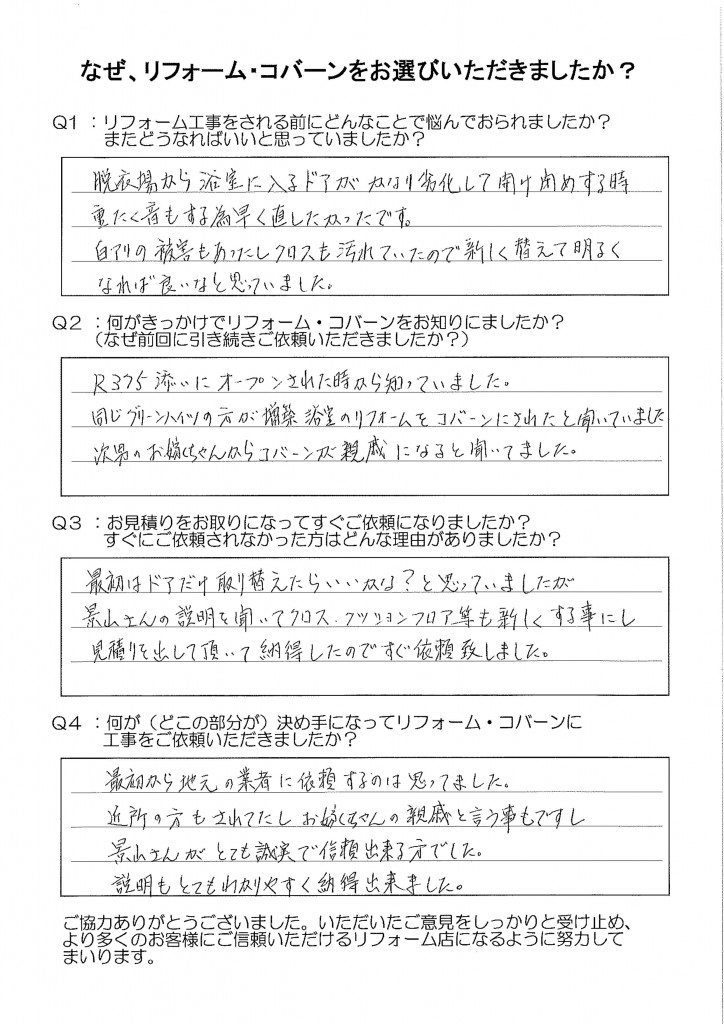 なぜ、リフォーム・コバーンをお選びいただきましたか？
Q1 ：リフォーム工事をされる前にどんなことで悩んでおられましたか？
またどうなればいいと思っていましたか？
脱衣場から浴室に入るドアがかなり劣化して開け閉めする時
重たく音もする為早く直したかったです。
白アリの被害もあったしクロスも汚れていたので新しく替えて明るく
なれば良いなと思っていました。
Q2 ：何がきっかけでリフォーム・コバーンをお知りにましたか？
（なぜ前回に引き続きご依頼いただきましたか？）
R375添いにオープンされた時から知っていました。
同じグリーンハイツの方が増築 浴室のリフォームをコバーンにされたと聞いていました
次男のお嫁ちゃんからコバーンが親戚になると聞いてました。
Q3 ：お見積りをお取りになってすぐご依頼になりましたか？
すぐにご依頼されなかった方はどんな理由がありましたか？
最初はドアだけ取り替えたらいいかな？と思っていましたが
景山さんの説明を聞いてクロス、クッションフロア等も新しくする事にし
見積りを出して頂いて納得したのですぐ依頼致しました。
Q4 ：何が（どこの部分が）決め手になってリフォーム・コバーンに
工事をご依頼いただきましたか？
最初から地元の業者に依頼するのは思ってました。
近所の方もされてたし お嫁ちゃんの親戚と言う事もですし
景山さんがとても誠実で信頼出来る方でした。
説明もとてもわかりやすく納得出来ました。
ご協力ありがとうございました。いただいたご意見をしっかりと受け止め、
より多くのお客様にご信頼いただけるリフォーム店になるように努力して
まいります。